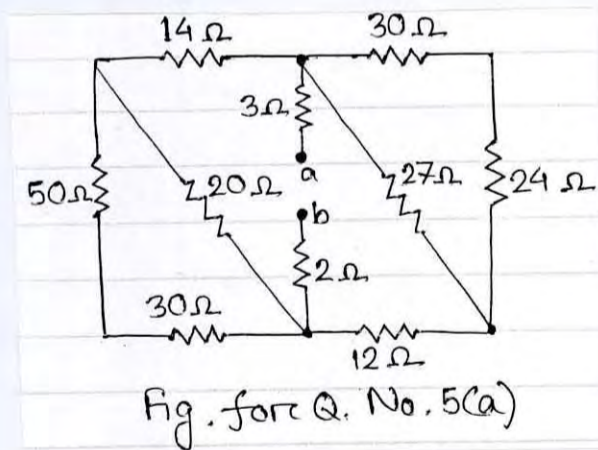 14Ω 30Ω
3Ω
a
50Ω 20Ω 27Ω 24Ω
b
2Ω
30Ω
12Ω
Fig. forc Q. No. 5(a)